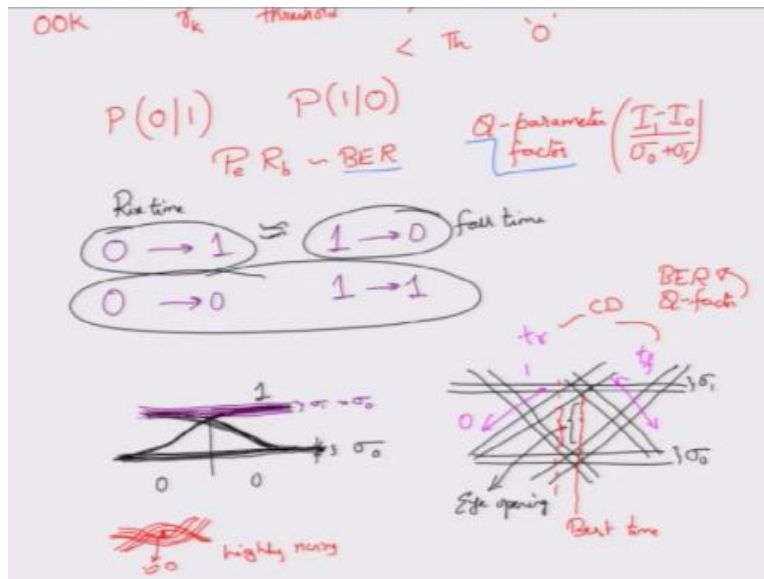 OOK γk threshold
< Th '0'
P(0|1) P(1|0)
Q-parameter factor (I₁-I₀ / σ₀+σ₁)
Pe Rb ~ BER
Rise time
0 → 1 ≈ 1 → 0 fall time
0 → 0 1 → 1
BER
Q-factor
CD
tr tf
1
0
}σ₁
}σ₀
Eye opening
Best time
1
} σ₁ σ₀
} σ₀
0 0
≈0 highly noisy